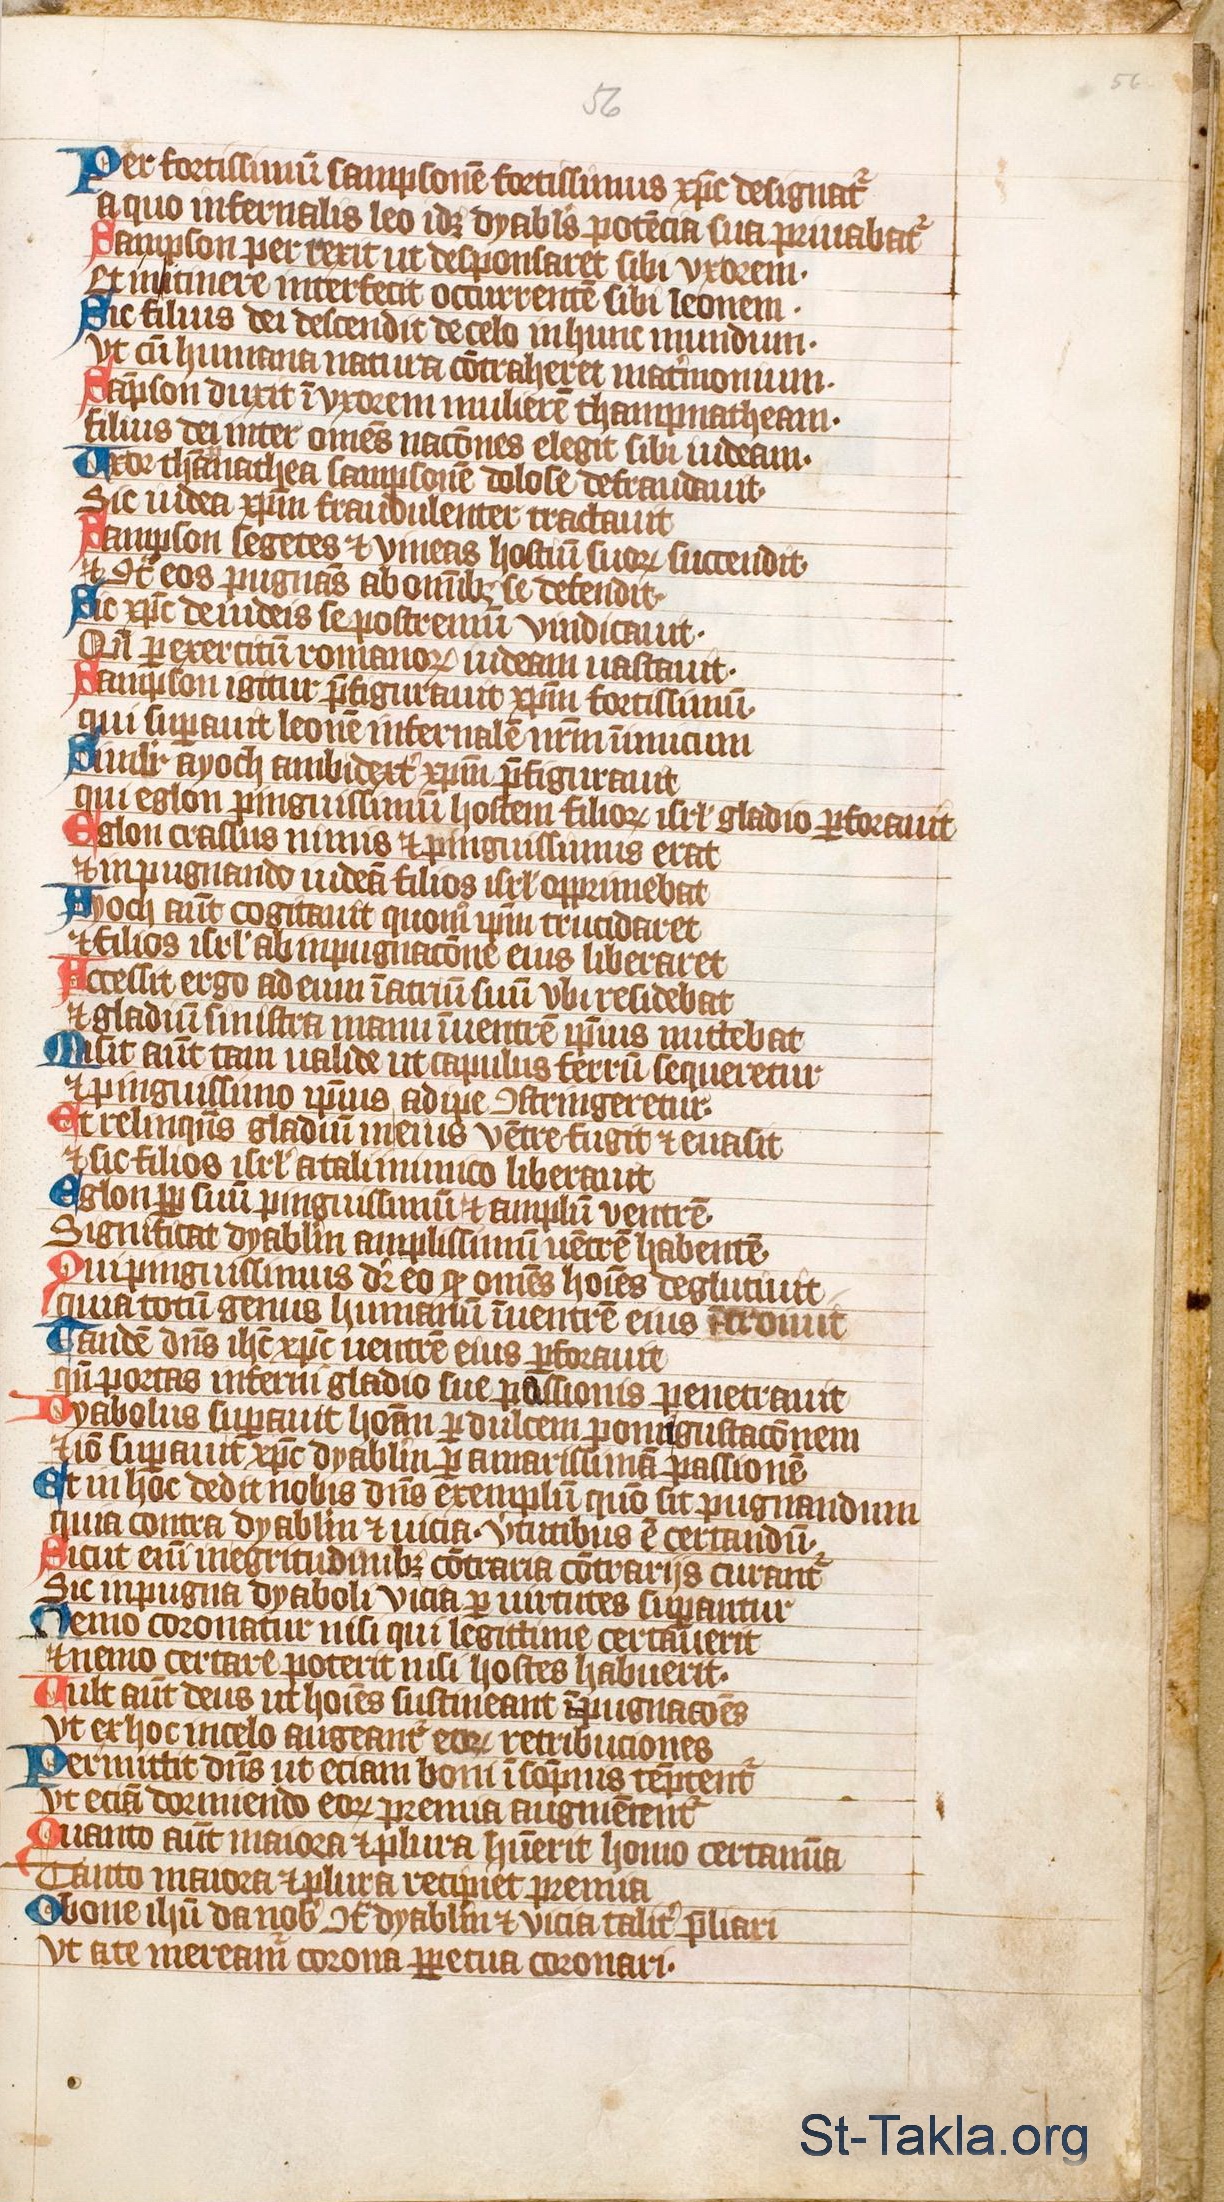 56
56
Per fortissimū sampsonē fortissimus xp̄c designat᷑
a quo infernalis leo idꝫ dyabl̓s potēcia sua priuabat᷑
Sampson per rexit ut desponsaret sibi vxorem·
Et initinere interfecit occurrentē sibi leonem·
Sic filius dei descendit de celo in hunc mundum·
Vt cū humana natura cōtraheret mat̓monium·
Sāpson duxit ī vxorem mulierē thampnatheam·
filius dei inter om̄es nacōnes elegit sibi iudeam·
Uxor thānathea sampsonē dolose defraudauit·
Sic iudea xp̄m fraudulenter tractauit
Sampson segetes ⁊ vineas hostiū suoꝝ succendit
⁊ ꝯt̄ eos pugnās ab om̄ibꝫ se defendit·
Sic xp̄c de iudeis se postremū vindicauit·
Qn̄ ꝑ exercitū romanoꝝ iudeam uastauit·
Sampson igitur p̄figurauit xp̄m fortissimū
qui suꝑauit leonē infernalē nr̄m īimicum
Simil̓r ayoch ambidext᷑ xp̄m p̄figurauit
qui eglon pinguissimū hostem filioꝝ isrl̓ gladio ꝑforauit
Eglon crassus nimis ⁊ pinguissimus erat
⁊ inpugnando iudeā filios isrl̓ opprimebat
Ayoch aūt cogitauit quom̊ ip̄m trucidaret
⁊ filios isrl̓ ab inpugnacōne eius liberaret
Accessit ergo ad eum ī atriū suū vbi residebat
⁊ gladiū sinistra manu ī uentrē ip̄ius mittebat
Misit aūt tam ualide ut capulus ferrū sequeretur
⁊ pinguissimo ip̄ius adipe ꝯstringeretur·
Et relinqūs gladiū in eius vētre fugit ⁊ euasit
⁊ sic filios isrl̓ a tali inimico liberauit
Eglon ꝑp̄ suū pinguissimū ⁊ amplū ventrē·
Significat dyabl̄m amplissimū uētrē habentē·
Qui pinguissimus dr̄ eo ꝙ om̄es hoīes deglutiuit
quia totū genus humanū ī uentrē eius ītroiuit
Tandē dn̄s ih̄c xp̄c uentrē eius ꝑforauit
qn̄ portas inferni gladio sue passionis penetrauit
Dyabolus suꝑauit hoīem ꝑ dulcem pomi gustacōnem
⁊ iō suꝑauit xp̄c dyabl̄m ꝑ amarissimā passionē
Et in hoc dedit nobis dn̄s exemplū quō sit pugnandum
quia contra dyabl̄m ⁊ uicia· v̓tutibus ē certandū·
Sicut em̄ in egritudinibꝫ cōtraria cōtrarijs curant᷑
Sic in pugna dyaboli vicia ꝑ uirtutes suꝑantur
Nemo coronatur nisi qui legittime certauerit
⁊ nemo certare poterit nisi hostes habuerit·
Uult aūt deus ut hoīes sustineant īpugnacōēs
Vt ex hoc in celo augeant᷑ eoꝝ retribuciones
Permittit dn̄s ut eciam boni ī sōpnis tēptent᷑
Vt eciā dormiendo eoꝝ premia augmētent᷑
Quanto aūt maiora ⁊ plura hūerit homo certamīa
Tanto maiora ⁊ plura recipiet premia
O bone ih̄u da nob̓ ꝯt̄ dyabl̄m ⁊ vicia talit᷑ p̄liari
Vt a te meream᷑ corona ꝑpetua coronari·
St-Takla.org